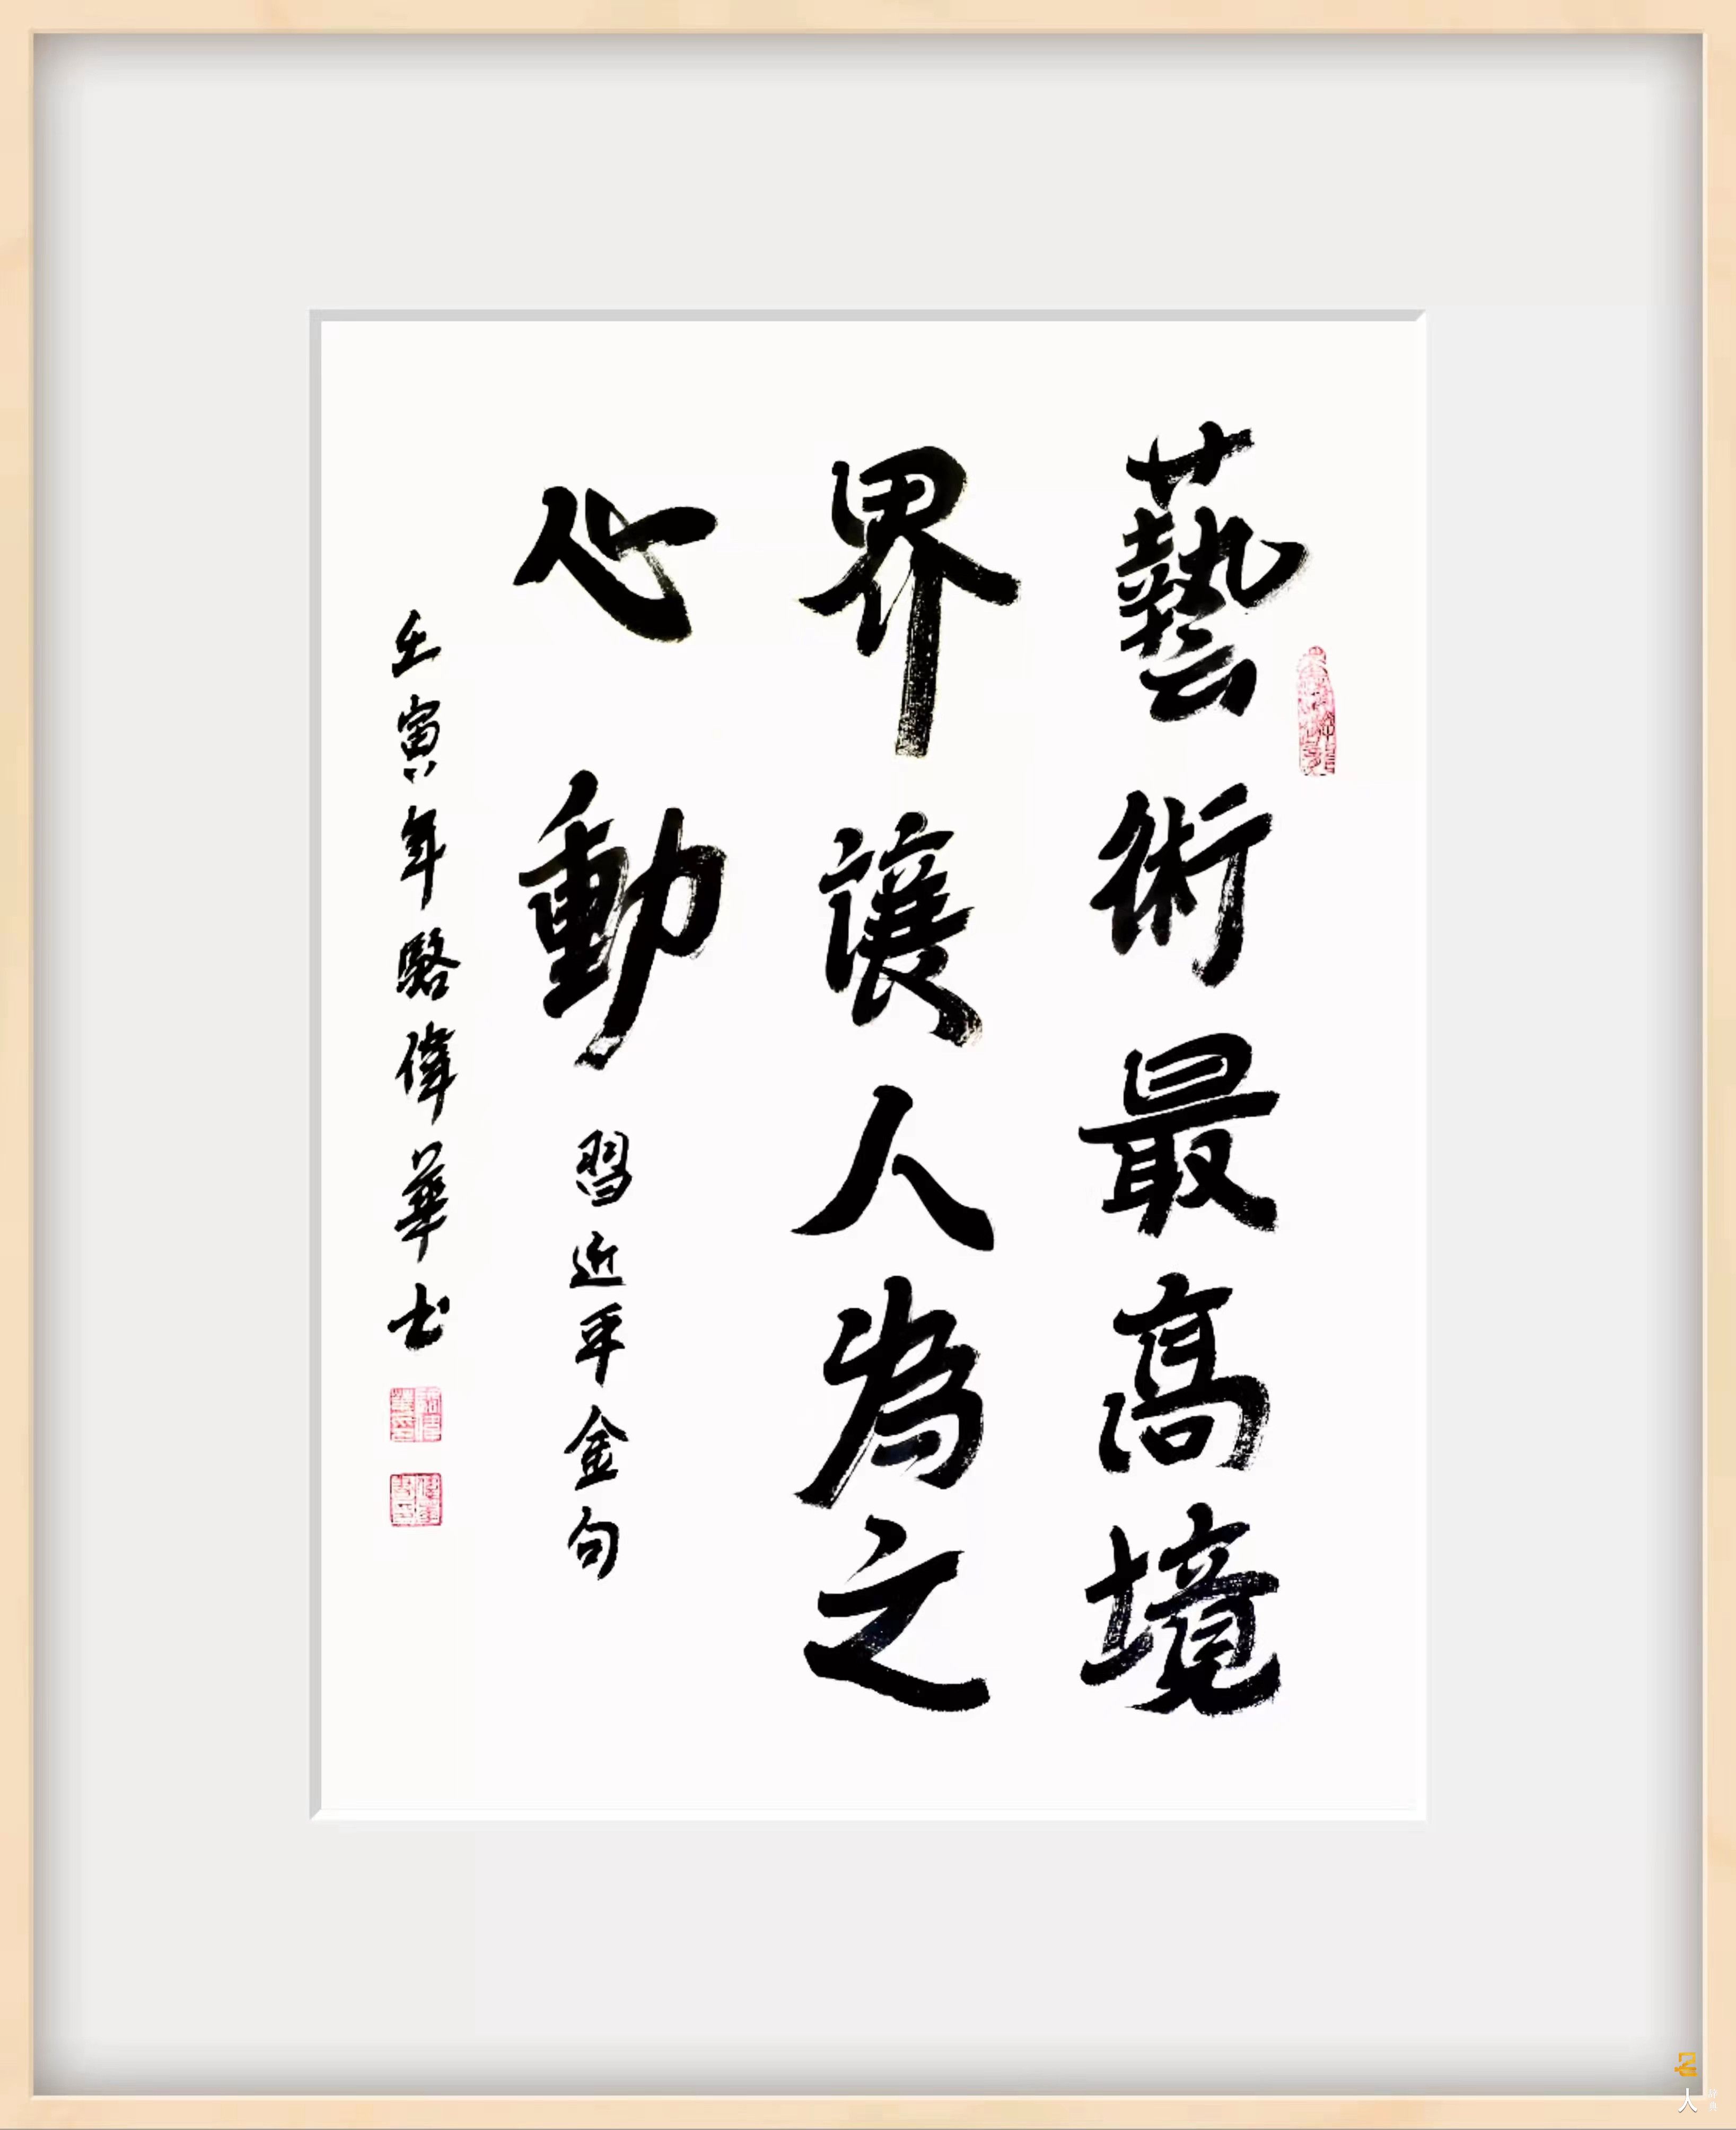 藝術最高境
界讓人為之
心動
習近平金句
壬寅年駱偉華书
名人